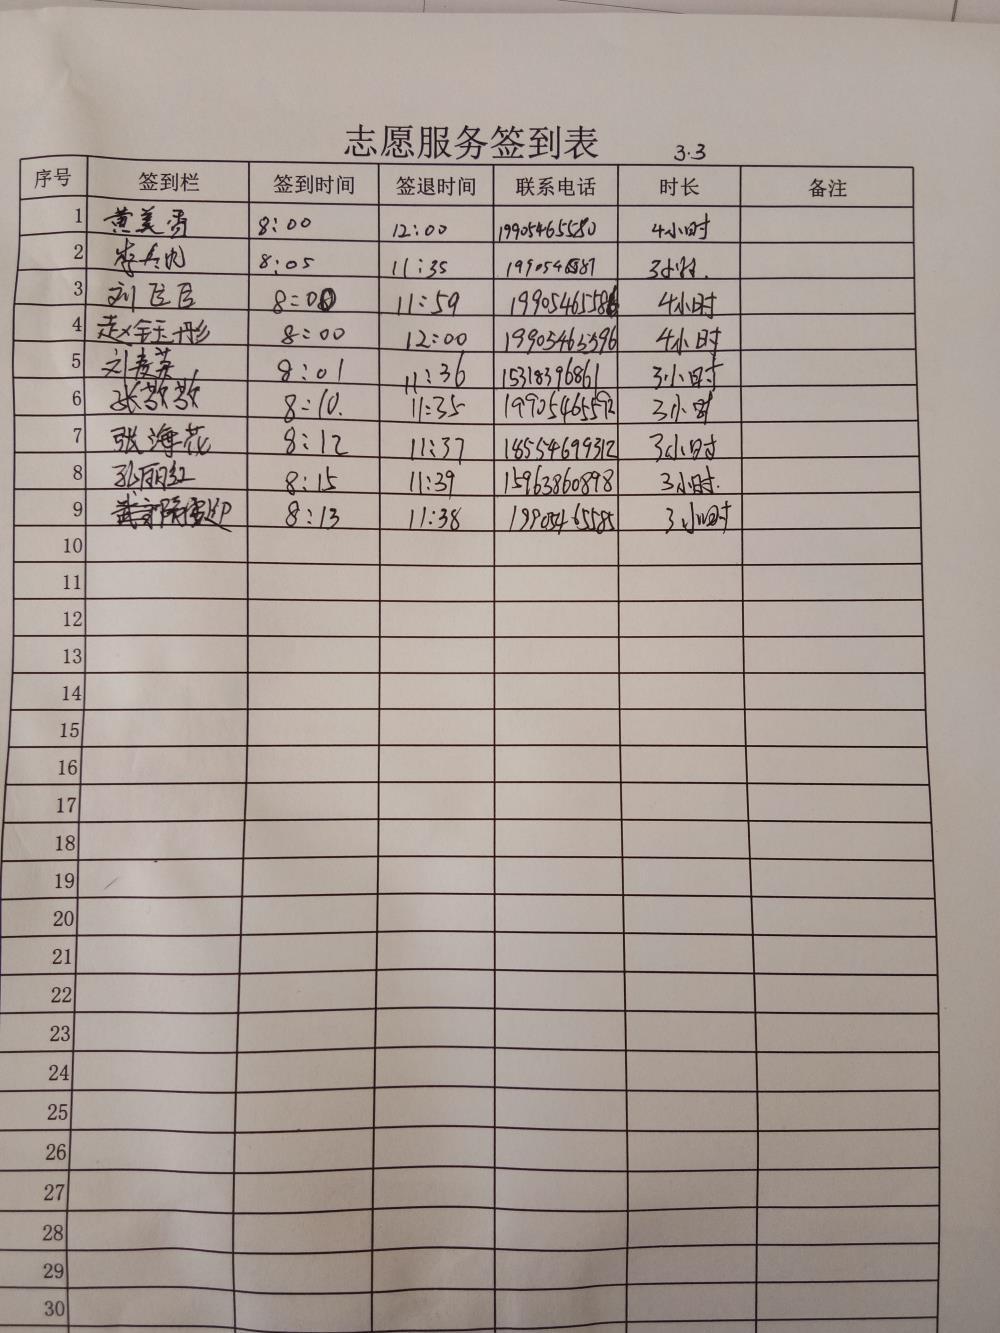 志愿服务签到表 3.3
序号 签到栏 签到时间 签退时间 联系电话 时长 备注
1 黄美香 8:00 12:00 19905465580 4小时
2 8:05 11:35 3小时.
3 刘臣臣 8:00 11:59 19905465586 4小时
4 赵钰彤 8:00 12:00 19905465596 4小时
5 刘麦英 8:01 11:36 15318396861 3小时
6 张敬敬 8:10. 11:35 19905465592 3小时
7 张海花 8:12 11:37 18554699312 3小时
8 孙丽红 8:15 11:39 15963860898 3小时.
9 8:13 11:38 19905465585 3小时
10
11
12
13
14
15
16
17
18
19
20
21
22
23
24
25
26
27
28
29
30